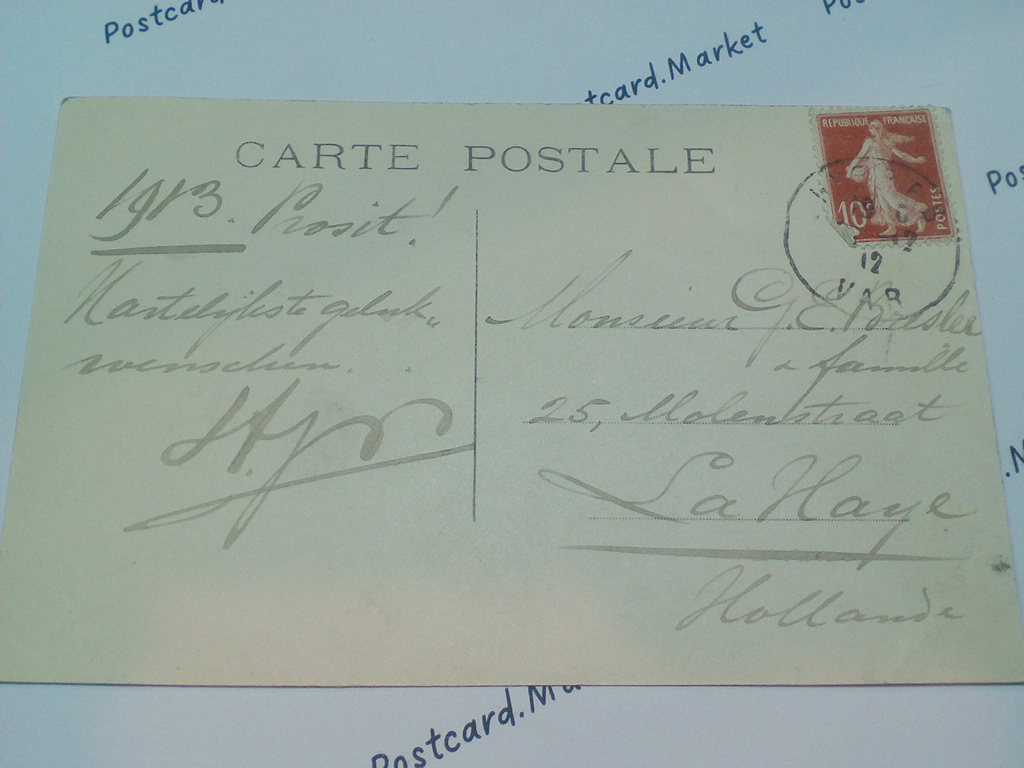 Postcard
Postcard.Market
Po
tcard.Market
Pos
.M
Postcard.Ma
CARTE POSTALE
REPUBLIQUE FRANÇAISE
10
POSTES
12
VAR
1913. Prosit!
Hartelijkste geluk„
wenschen.
Monsieur G.E.
& famille
25, Molenstraat
La Haye
Hollande